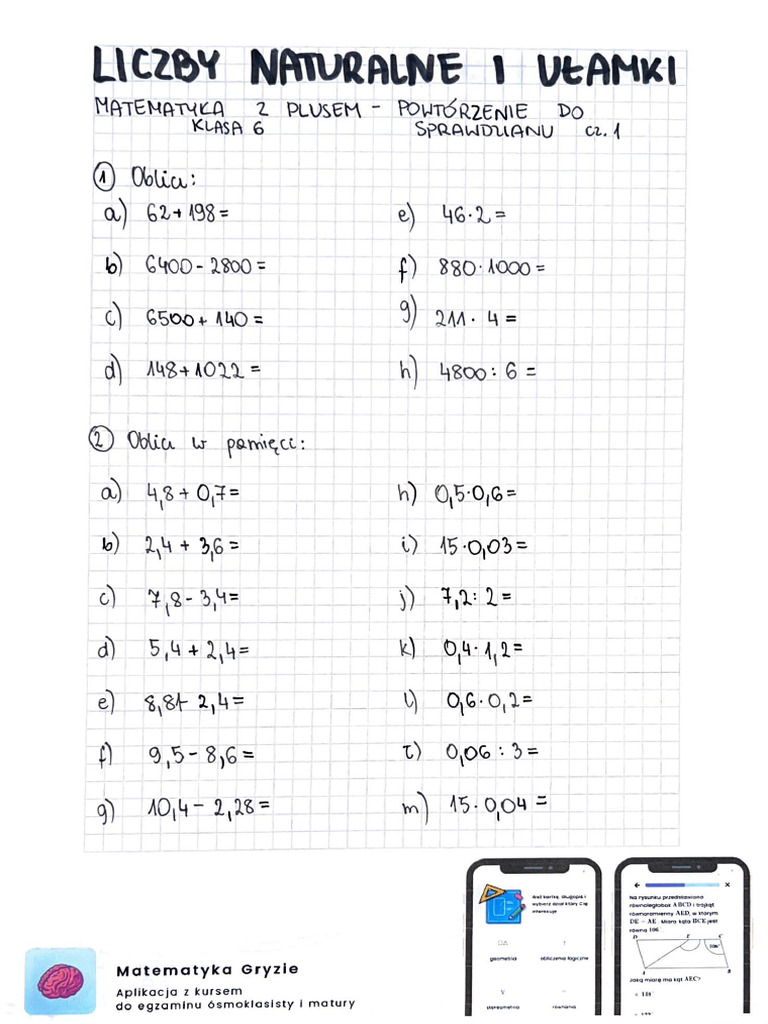 LICZBY NATURALNE I UŁAMKI
MATEMATYKA Z PLUSEM - POWTÓRZENIE DO
KLASA 6 SPRAWDZIANU cz. 1
1 Oblicz:
a) 62+198=
b) 6400-2800=
c) 6500+140=
d) 148+1022=
e) 46·2=
f) 880·1000=
g) 211·4=
h) 4800:6=
2 Oblicz w pamięci:
a) 4,8+0,7=
b) 2,4+3,6=
c) 7,8-3,4=
d) 5,4+2,4=
e) 8,8-2,4=
f) 9,5-8,6=
g) 10,4-2,28=
h) 0,5·0,6=
i) 15·0,03=
j) 7,2:2=
k) 0,4·1,2=
l) 0,6·0,2=
ł) 0,06:3=
m) 15·0,04=
Matematyka Gryzie
Aplikacja z kursem
do egzaminu ósmoklasisty i matury
Weź kartkę, długopis i
wybierz dział który Cię
interesuje
geometria
obliczenia logiczne
stereometria
równania
Na rysunku przedstawiono
równoległobok ABCD i trójkąt
równoramienny AED, w którym
DE = AE. Miara kąta BCE jest
równa 106°
D E C
106°
A B
Jaką miarę ma kąt AEC?